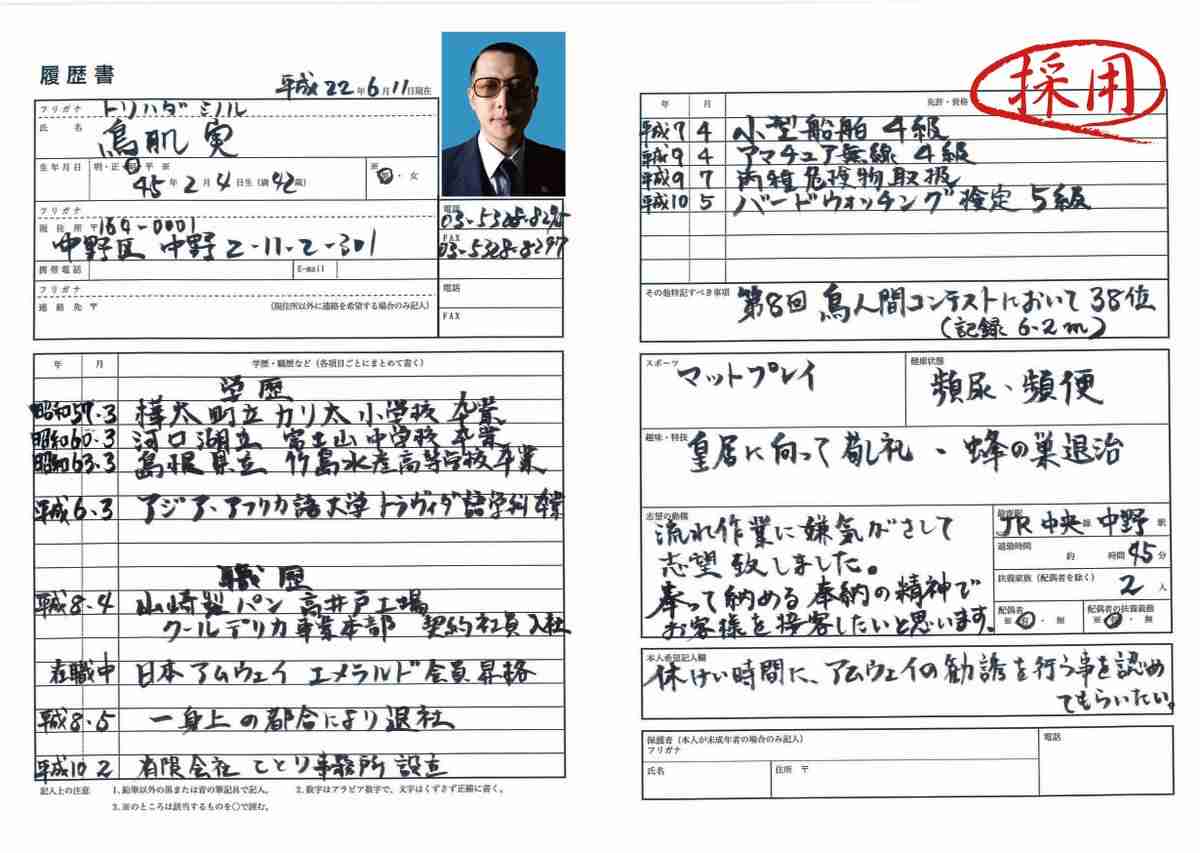 履歴書
平成22年6月11日現在
フリガナ トリハダ ミノル
氏名 鳥肌 実
生年月日 明・正・昭・平 ※
45年2月4日生(満42歳)
※ 男・女
フリガナ
現住所 〒164-0001
中野区 中野2-11-2-301
電話
03-5328-8295
FAX
03-5328-8297
携帯電話
E-mail
フリガナ
連絡先 〒
(現住所以外に連絡を希望する場合のみ記入)
電話
FAX
年 月 学歴・職歴など(各項目ごとにまとめて書く)
学歴
昭和57.3 樺太町立カリ太小学校 卒業
昭和60.3 河口湖立 富士山中学校 卒業
昭和63.3 島根県立 竹島水産高等学校卒業
平成6.3 アジア・アフリカ語大学 ドラヴィダ語学科卒業
職歴
平成8.4 山崎製パン 高井戸工場
クールデリカ事業本部 契約社員入社
在職中 日本アムウェイ エメラルド会員昇格
平成8.5 一身上の都合により退社
平成10 2 有限会社 ことり事務所 設立
記入上の注意 1.鉛筆以外の黒または青の筆記具で記入。 2.数字はアラビア数字で、文字はくずさず正確に書く。
3.※のところは該当するものを〇で囲む。
採用
年 月 免許・資格
平成7 4 小型船舶 4級
平成9 4 アマチュア無線 4級
平成9 7 丙種危険物取扱
平成10 5 バードウォッチング検定 5級
その他特記すべき事項
第8回 鳥人間コンテストにおいて38位
(記録 6.2m)
スポーツ
マットプレイ
健康状態
頻尿、頻便
趣味・特技
皇居に向って敬礼・蜂の巣退治
志望の動機
流れ作業に嫌気がさして
志望致しました。
奉って納める奉納の精神で
お客様を接客したいと思います。
最寄駅
JR中央線 中野駅
通勤時間
約 時間45分
扶養家族(配偶者を除く)
2人
配偶者
※ 有・無
配偶者の扶養義務
※ 有・無
本人希望記入欄
休けい時間に、アムウェイの勧誘を行う事を認め
てもらいたい。
保護者(本人が未成年者の場合のみ記入)
フリガナ
氏名
住所 〒
電話